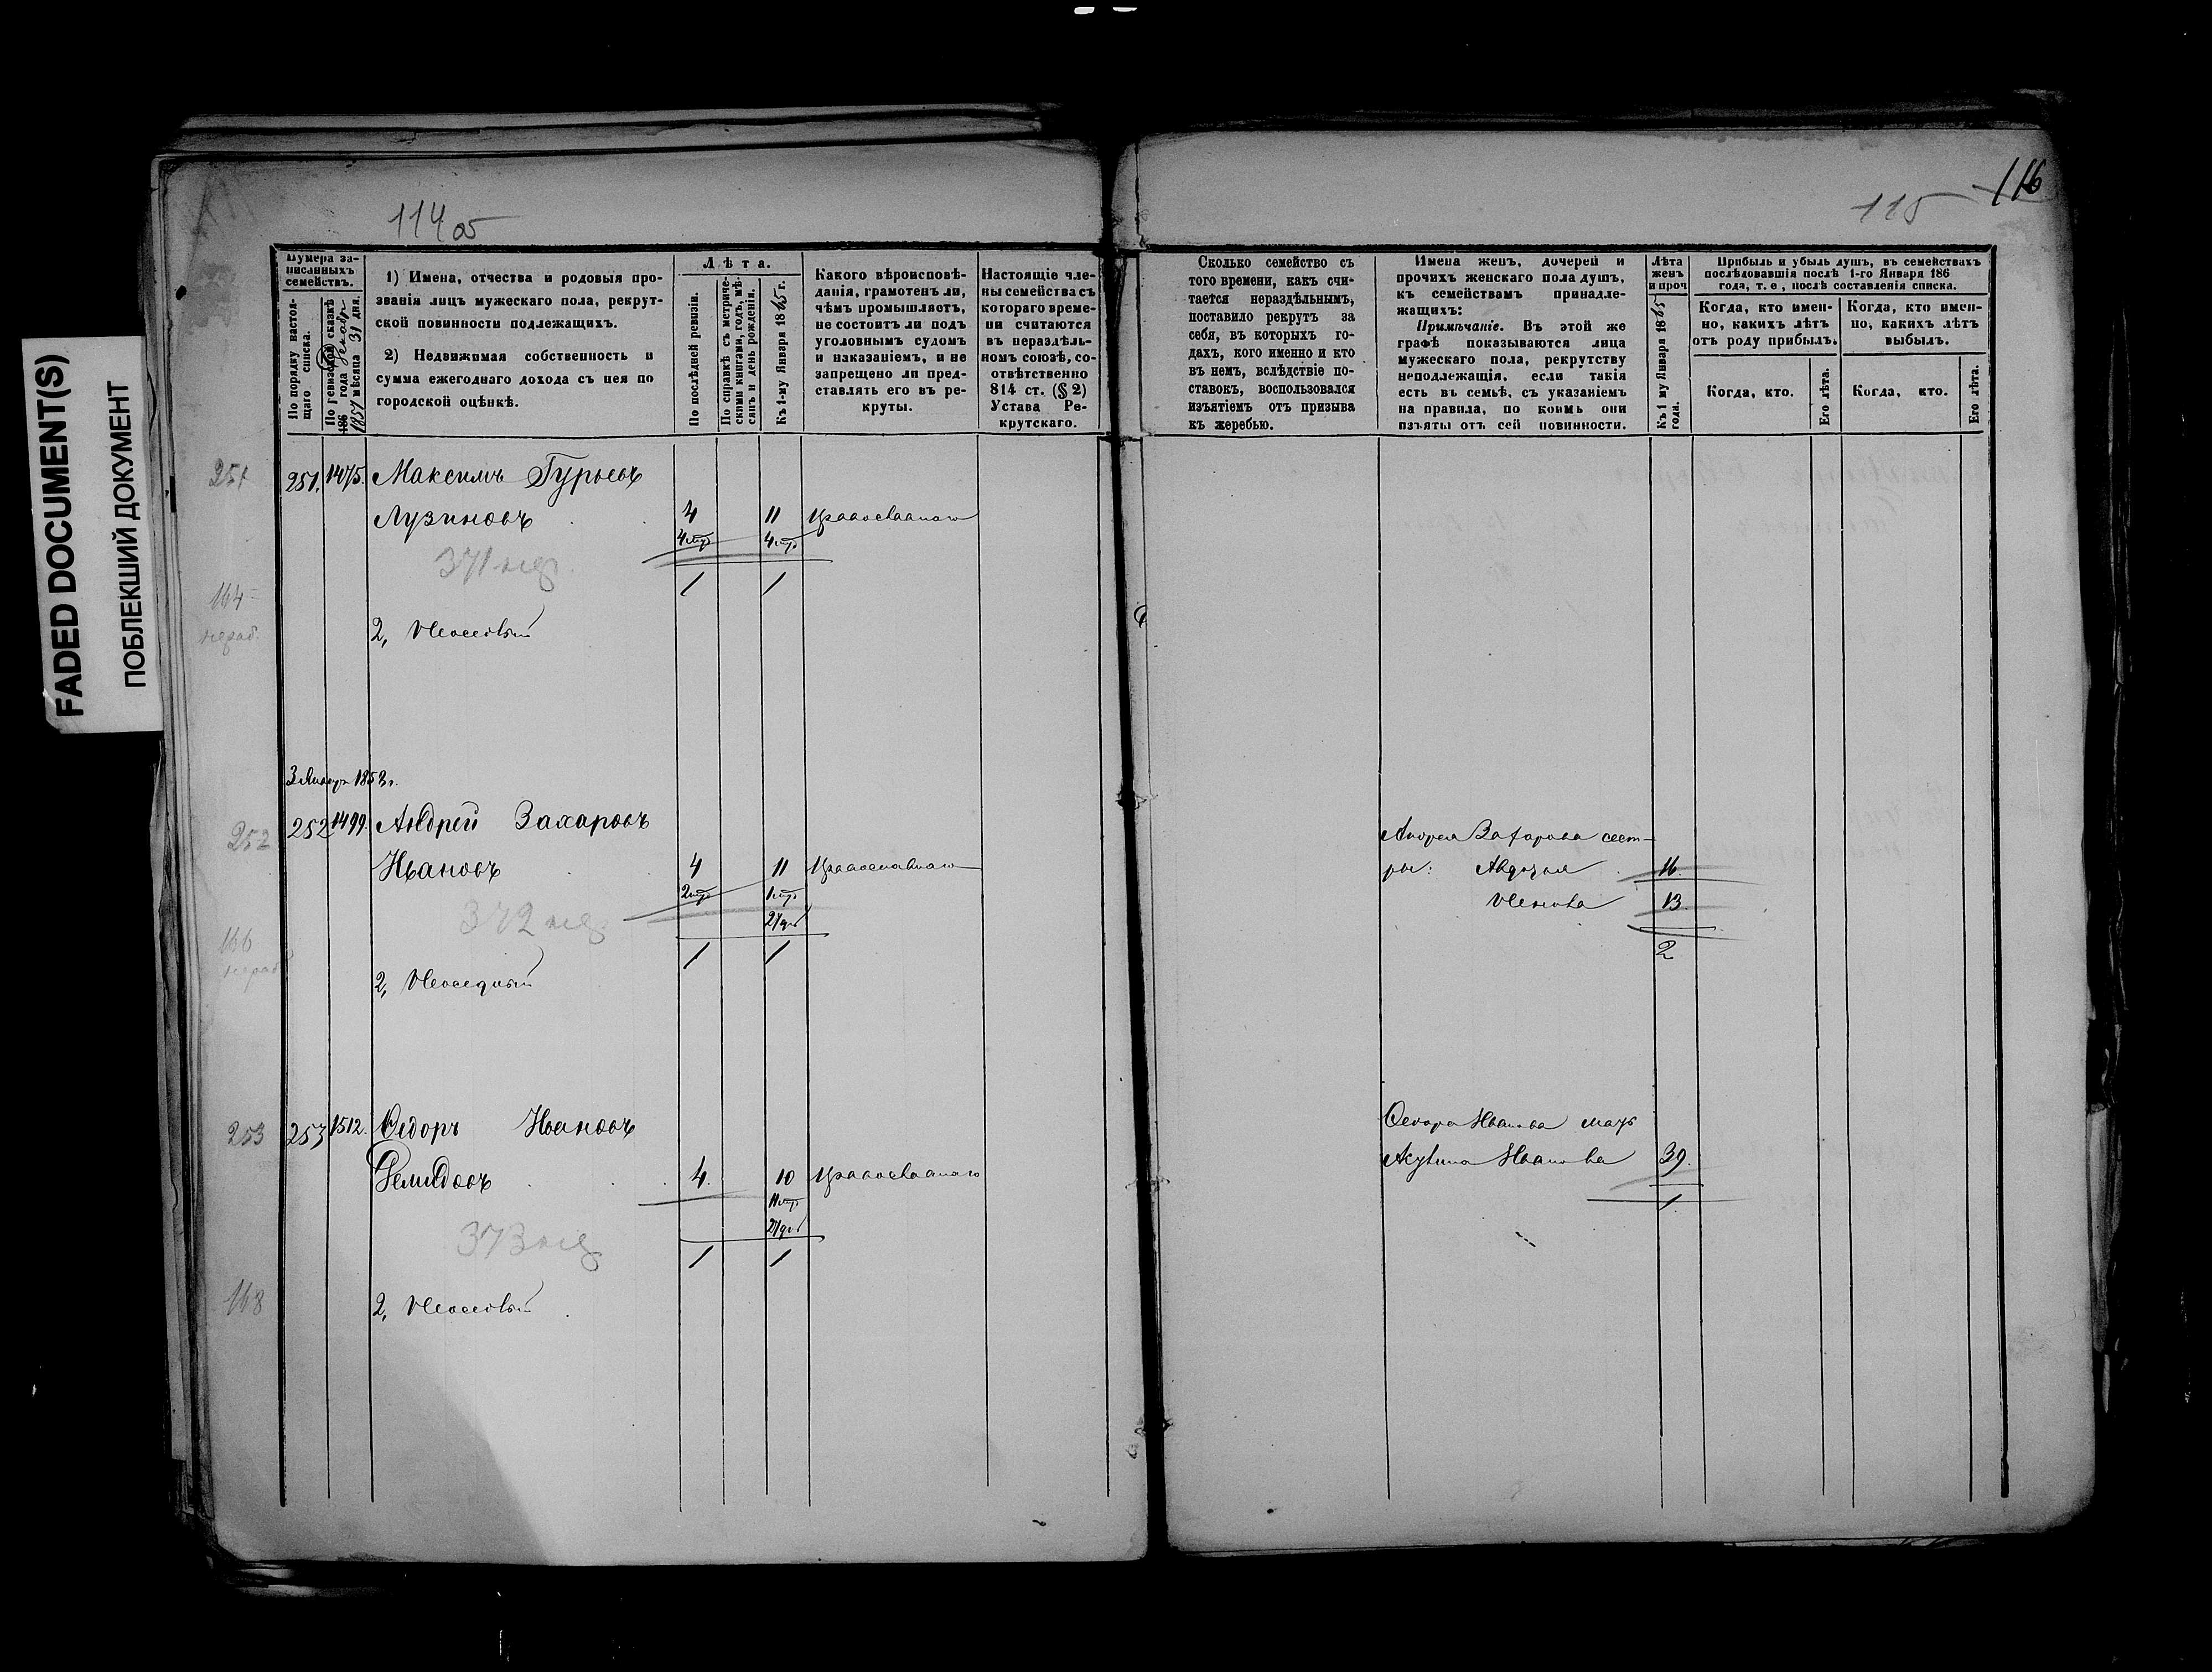 FADED DOCUMENT(S)
ПОБЛЕКШИЙ ДОКУМЕНТ
114 об
115
116
Нумера за-
писанныхъ
семействъ.
По порядку настоя-
щаго списка.
По ревизской сказкѣ
186 года
1857 мѣсяца 31 дня.
1) Имена, отчества и родовыя про-
званія лицъ мужескаго пола, рекрут-
ской повинности подлежащихъ.
2) Недвижимая собственность и
сумма ежегоднаго дохода съ нея по
городской оцѣнкѣ.
Лѣта.
По послѣдней ревизіи.
По справкѣ съ метриче-
скими книгами, годъ, мѣ-
сяцъ и день рожденія.
Къ 1-му Января 1865 г.
Какого вѣроисповѣ-
данія, грамотенъ ли,
чѣмъ промышляетъ,
не состоитъ ли подъ
уголовнымъ судомъ
и наказаніемъ, и не
запрещено ли пред-
ставлять его въ ре-
круты.
Настоящіе чле-
ны семейства съ
котораго време-
ни считаются
въ нераздѣль-
номъ союзѣ, со-
отвѣтственно
814 ст. (§ 2)
Устава Ре-
крутскаго.
Сколько семейство съ
того времени, какъ счи-
тается нераздѣльнымъ,
поставило рекрутъ за
себя, въ которыхъ го-
дахъ, кого именно и кто
въ немъ, вслѣдствіе по-
ставокъ, воспользовался
изъятіемъ отъ призыва
къ жеребью.
Имена женъ, дочерей и
прочихъ женскаго пола душъ,
къ семействамъ принадле-
жащихъ:
Примѣчаніе. Въ этой же
графѣ показываются лица
мужескаго пола, рекрутству
неподлежащія, если такія
есть въ семьѣ, съ указаніемъ
на правила, по коимъ они
изъяты отъ сей повинности.
Лѣта
женъ
и проч
Къ 1 му Января 1865
года.
Прибыль и убыль душъ, въ семействахъ
послѣдовавшія послѣ 1-го Января 186
года, т. е, послѣ составленія списка.
Когда, кто имен-
но, какихъ лѣтъ
отъ роду прибылъ.
Когда, кто имен-
но, какихъ лѣтъ
выбылъ.
Когда, кто.
Его лѣта.
Когда, кто.
Его лѣта.
251
251. 1475. Максимъ Гурьевъ
Лузиновъ 4 11 Православнаго
371
1 1
164
2,
3 Январ 1858 г.
252
252 1499. Андрей Захаровъ
Ивановъ 4 11 Православнаго
372
1 1
166
2,
Андрея Захарова сест-
ры: Авдотья 16
13
2
253
253 1512. Ѳедоръ Ивановъ
Демидовъ 4. 10 Православнаго
373
1 1
168
2,
Ѳедора Иванова мать
Акулина Иванова 39.
1